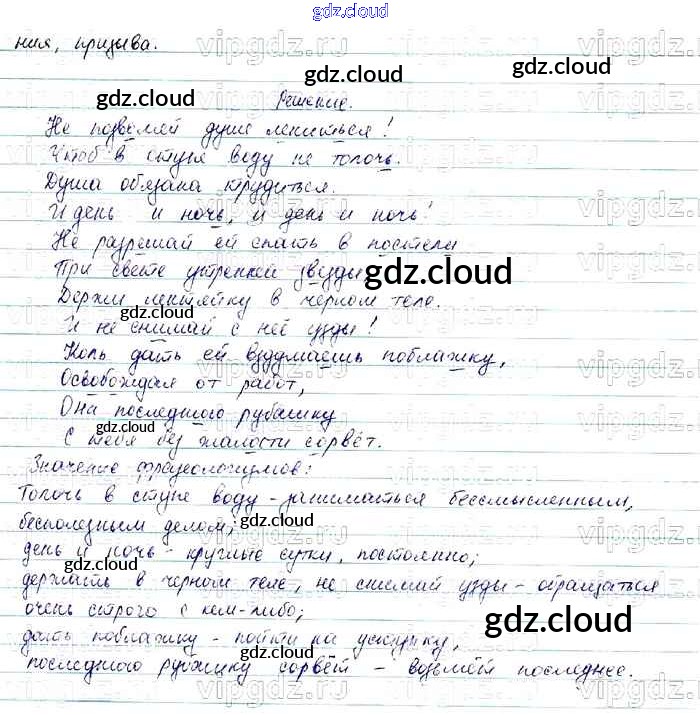 gdz.cloud
ния, призыва.
Решение.
Не позволяй душе лениться!
Чтоб в ступе воду не толочь.
Душа обязана трудиться.
И день и ночь, и день и ночь!
Не разрешай ей спать в постели
При свете утренней звезды
Держи лентяйку в черном теле.
И не снимай с неё узды!
Коль дать ей вздумаешь поблажку,
Освобождая от работ,
Она последнюю рубашку
С тебя без жалости сорвёт.
Значение фразеологизмов:
Толочь в ступе воду - заниматься бессмысленным,
бесполезным делом;
день и ночь - круглые сутки, постоянно;
держать в черном теле, не снимай узды - обращаться
очень строго с кем-либо;
дать поблажку - пойти на уступку,
последнюю рубашку сорвёт - возьмёт последнее.
gdz.cloud
vipgdz.ru